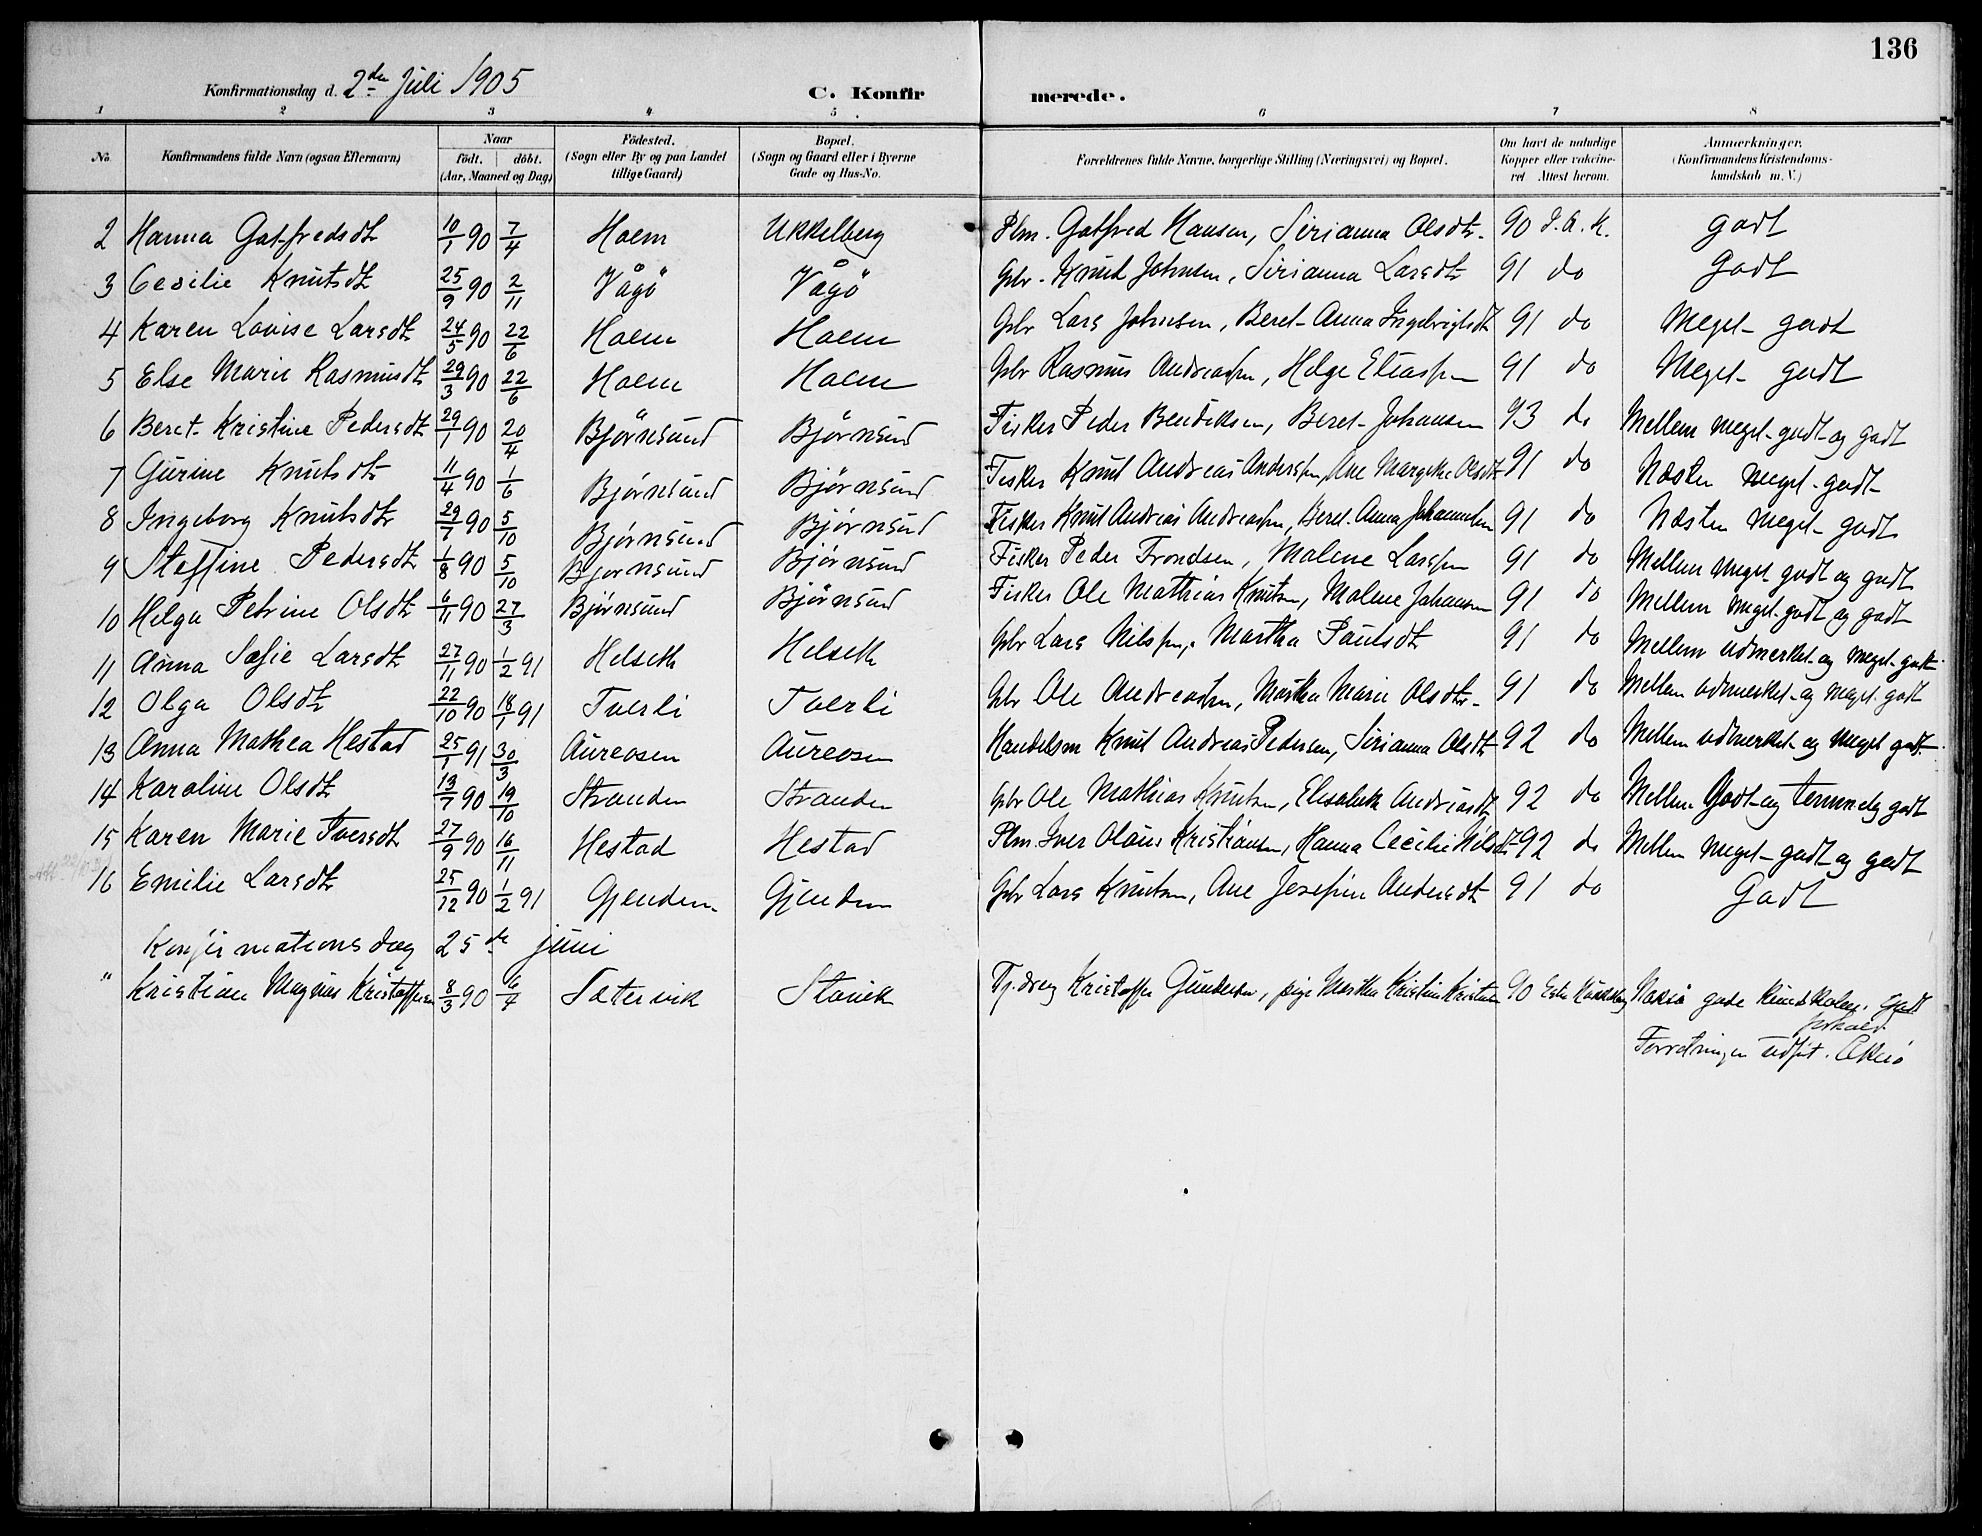 136
Konfirmationsdag d. 2den Juli 1905
C. Konfirmerede.
1 2 3 4 5 6 7 8
No. Konfirmandens fulde Navn (ogsaa Efternavn) Naar födt. döbt. (Aar, Maaned og Dag) Födested. (Sogn eller By og paa Landet tillige Gaard) Bopæl. (Sogn og Gaard eller i Byerne Gade og Hus-No. Forældrenes fulde Navne, borgerlige Stilling (Næringsvei) og Bopæl. Om havt de naturlige Kopper eller vakcineret Attest herom. Anmærkninger. (Konfirmandens Kristendomskundskab m. V.)
2 Hanna Gotfredsdt 10/1 90 7/4 Holm Ukkelberg Plm. Gotfred Hansen, Sirianna Olsdtr. 90 godt
3 Cecilie Knutsdt 25/9 90 2/11 Vågö Vågö Gbr. Knud Johnsen, Sirianna Larsdtr 91 do godt
4 Karen Lovise Larsdtr 24/5 90 22/6 Holm Holm Gbr Lars Johnsen, Beret Anna Ingebrigtsdt 91 do Meget godt
5 Else Marie Rasmusdt 29/3 90 22/6 Holm Holm Gbr Rasmus Andreassen, Helge Eliassen 91 do Meget godt
6 Beret Kristine Pedersdt 29/1 90 20/4 Björnsund Björnsund Fisker Peder Bendiksen, Beret Johansen 93 do Mellem meget godt og godt
7 Gurine Knutsdtr 11/4 90 1/6 Björnsund Björnsund Fisker Knut Andreas Anderssen, Ane Margrethe Olsdt 91 do Næsten meget godt
8 Ingeborg Knutsdtr 29/7 90 5/10 Björnsund Björnsund Fisker Knut Andreas Andreassen, Beret Anna Johannesen 91 do Næsten meget godt
9 Steffine Pedersdt 1/8 90 5/10 Björnsund Björnsund Fisker Peder Trondsen, Malene Larssen 91 do Mellem meget godt og godt
10 Helga Petrine Olsdtr 6/11 90 27/3 Björnsund Björnsund Fisker Ole Mathias Knutsen, Malene Johansen 91 do Mellem meget godt og godt
11 Anna Sofie Larsdtr 27/11 90 1/2 91 Helseth Helseth Gbr Lars Nilssen, Martha Paulsdt 91 do Mellem udmerket og meget godt
12 Olga Olsdt 22/10 90 18/1 91 Tverli Tverli Gbr Ole Andreassen, Martha Marie Olsdtr 91 do Mellem udmerket og meget godt
13 Anna Mathea Hestad 25/1 91 30/3 Aureosen Aureosen Handelsm Knut Andreas Pedersen, Sirianna Olsdt 92 do Mellem udmerket og meget godt
14 Karoline Olsdt 13/7 90 19/10 Stranden Stranden Gbr Ole Mathias Knutsen, Elisabeth Andreasdt 92 do Mellem Godt og temmelig godt
15 Karen Marie Iversdt 27/9 90 16/11 Hestad Hestad Plm. Iver Olaus Kristiansen, Hanna Cecilie Nilsdt 92 do Mellem meget godt og godt
16 Emilie Larsdtr 25/12 90 1/2 91 Gjendem Gjendem Gbr Lars Knutsen, Ane Josefine Andersdt 91 do Godt
Konfirmationsdag 25de juni
" Kristian Magnus Kristoffersen 8/3 90 6/4 Sætervik Stavik Tj.dreng Kristoffer Gundersen, pige Martha Kristine 90 gode kundskaber. Godt
forhold
Forretningen udført.